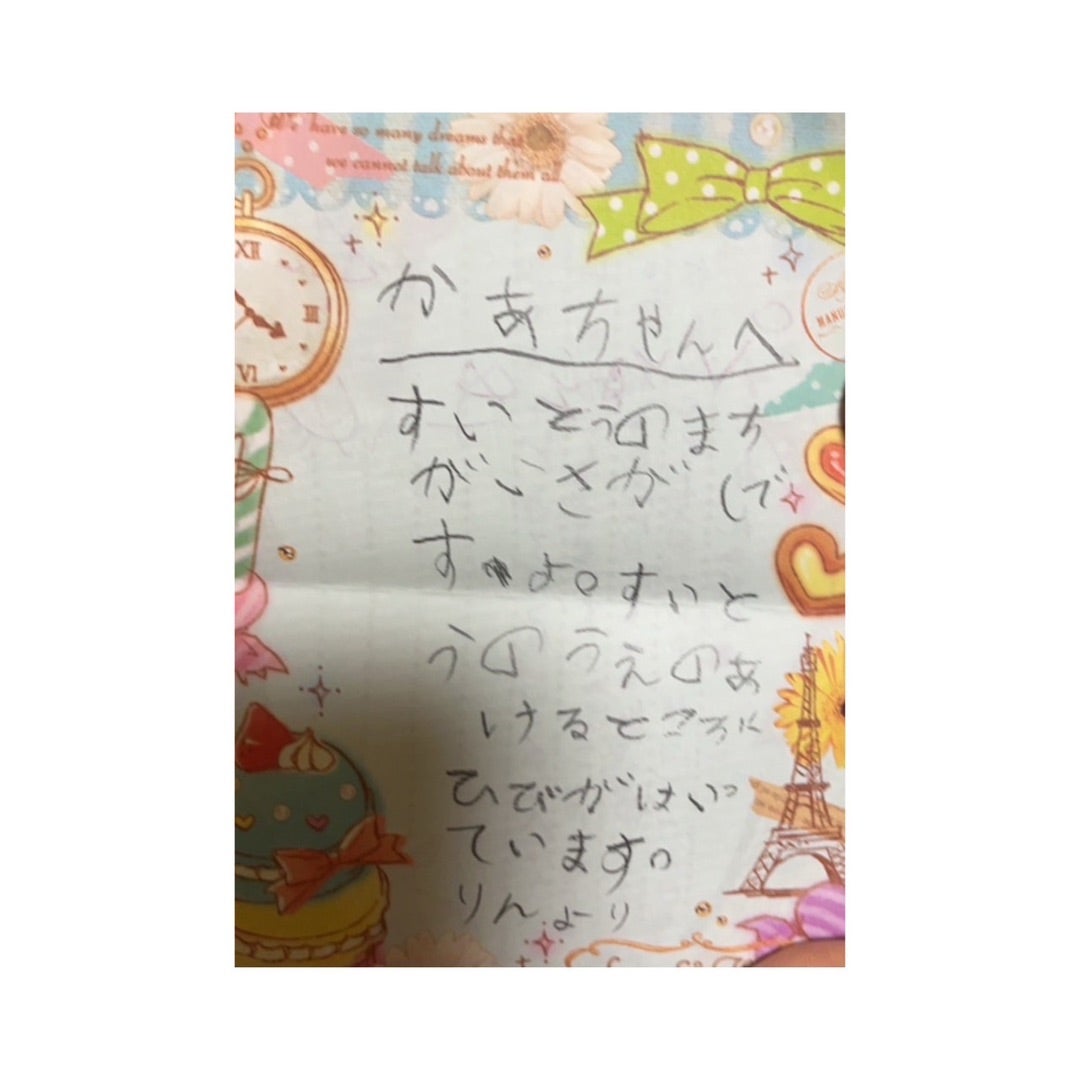 We have so many dreams that
we cannot talk about them all
XII
III
VI
かあちゃんへ
すいとうのまち
がいさがしで
すよ。すいと
うのうえのあ
けるところに
ひびがはいっ
ています。
りんより